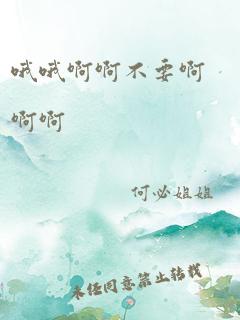 哦哦啊啊不要啊
啊啊
何必姐姐
未经同意禁止转载